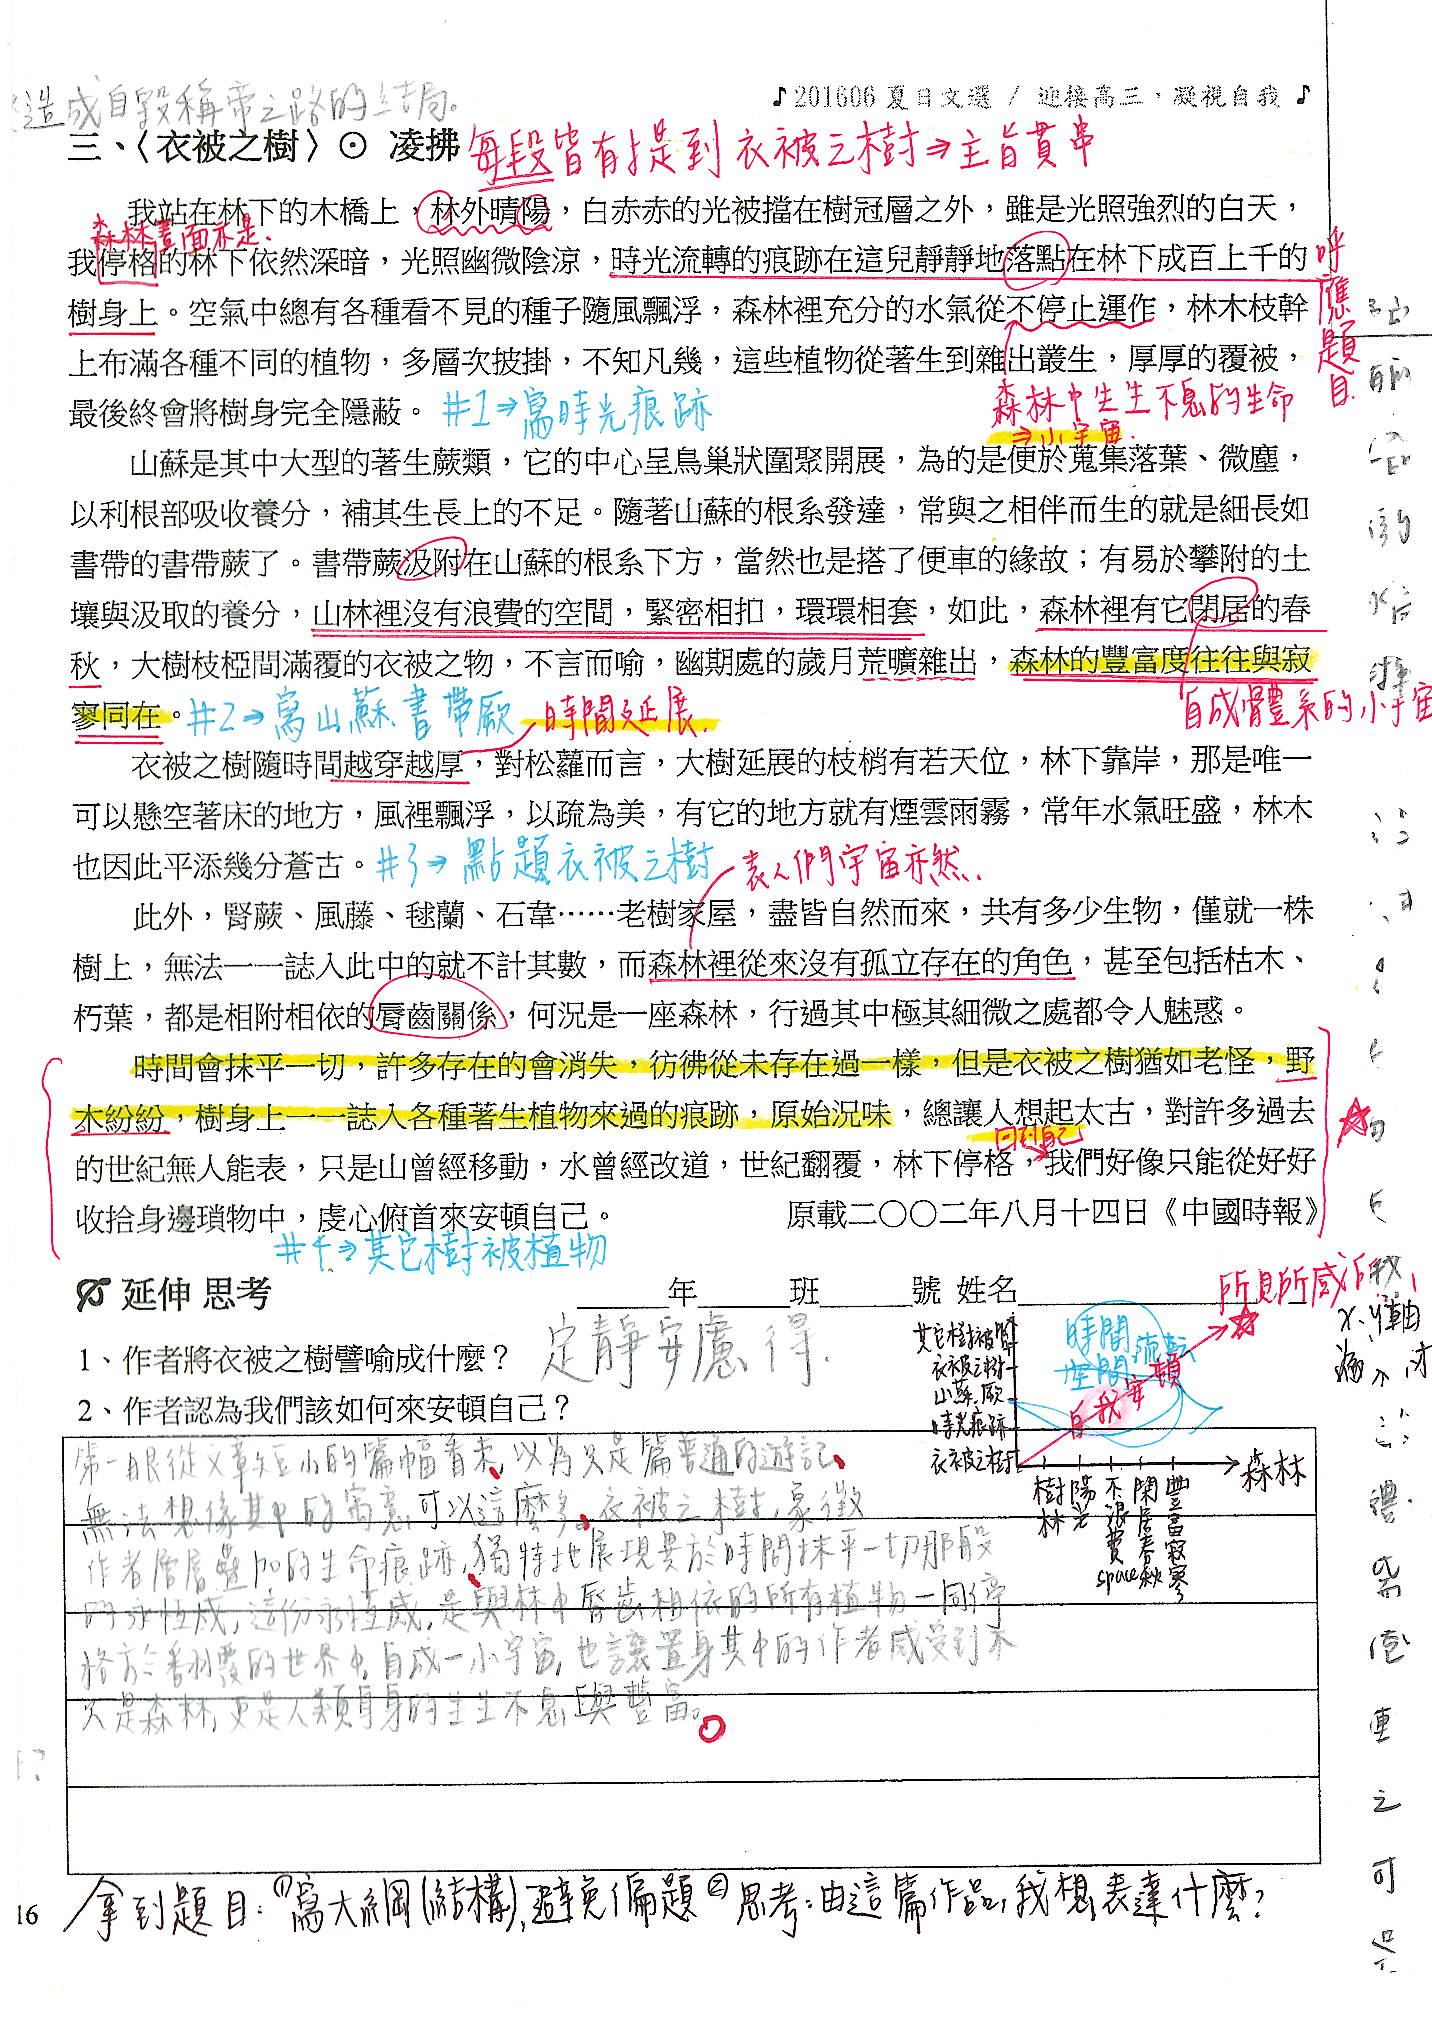 造成自毀稱帝之路的結局。
♪201606夏日文選 / 迎接高三，凝視自我 ♪
三、〈衣被之樹〉⊙ 凌拂
每段皆有提到衣被之樹⇒主旨貫串
我站在林下的木橋上，林外晴陽，白赤赤的光被擋在樹冠層之外，雖是光照強烈的白天，
森林畫面亦是.
我停格的林下依然深暗，光照幽微陰涼，時光流轉的痕跡在這兒靜靜地落點在林下成百上千的
呼應題目.
樹身上。空氣中總有各種看不見的種子隨風飄浮，森林裡充分的水氣從不停止運作，林木枝幹
上布滿各種不同的植物，多層次披掛，不知凡幾，這些植物從著生到雜出叢生，厚厚的覆被，
最後終會將樹身完全隱蔽。
#1⇒寫時光痕跡
森林中生生不息的生命
⇒小宇宙.
山蘇是其中大型的著生蕨類，它的中心呈鳥巢狀圍聚開展，為的是便於蒐集落葉、微塵，
以利根部吸收養分，補其生長上的不足。隨著山蘇的根系發達，常與之相伴而生的就是細長如
書帶的書帶蕨了。書帶蕨汲附在山蘇的根系下方，當然也是搭了便車的緣故；有易於攀附的土
壤與汲取的養分，山林裡沒有浪費的空間，緊密相扣，環環相套，如此，森林裡有它閉居的春
秋，大樹枝椏間滿覆的衣被之物，不言而喻，幽期處的歲月荒曠雜出，森林的豐富度往往與寂
寥同在。
#2⇒寫山蘇.書帶厥
時間延展.
自成體系的小宇宙
衣被之樹隨時間越穿越厚，對松蘿而言，大樹延展的枝梢有若天位，林下靠岸，那是唯一
可以懸空著床的地方，風裡飄浮，以疏為美，有它的地方就有煙雲雨霧，常年水氣旺盛，林木
也因此平添幾分蒼古。
#3⇒點題衣被之樹
表人們宇宙亦然.
此外，腎蕨、風藤、毬蘭、石韋……老樹家屋，盡皆自然而來，共有多少生物，僅就一株
樹上，無法一一誌入此中的就不計其數，而森林裡從來沒有孤立存在的角色，甚至包括枯木、
朽葉，都是相附相依的脣齒關係，何況是一座森林，行過其中極其細微之處都令人魅惑。
時間會抹平一切，許多存在的會消失，彷彿從未存在過一樣，但是衣被之樹猶如老怪，野
木紛紛，樹身上一一誌入各種著生植物來過的痕跡，原始況味，總讓人想起太古，對許多過去
回到自己
的世紀無人能表，只是山曾經移動，水曾經改道，世紀翻覆，林下停格，我們好像只能從好好
收拾身邊瑣物中，虔心俯首來安頓自己。
原載二○○二年八月十四日《中國時報》
#4⇒其它樹被植物
延伸 思考
______年______班______號 姓名
所見所感
1、作者將衣被之樹譬喻成什麼？
定靜安慮得.
2、作者認為我們該如何來安頓自己？
其它樹被
衣被之樹
山蘇.厥
時光痕跡
衣被之樹
時間
空間
流轉
自我安頓
森林
樹林
陽光
不浪費space
閑居春秋
豐富寂寥
第一眼從文章短小的篇幅看來，以為只是篇普通的遊記，
無法想像其中的寓意可以這麼多。衣被之樹，象徵
作者層層疊加的生命痕跡，獨特地展現異於時間抹平一切那般
的永恆感，這份永恆感，是與林中唇齒相依的所有植物一同停
格於翻覆的世界中，自成一小宇宙，也讓置身其中的作者感受到不
只是森林，更是人類自身的生生不息與豐富。
16
拿到題目：①寫大綱(結構)，避免偏題②思考：由這篇作品，我想表達什麼？